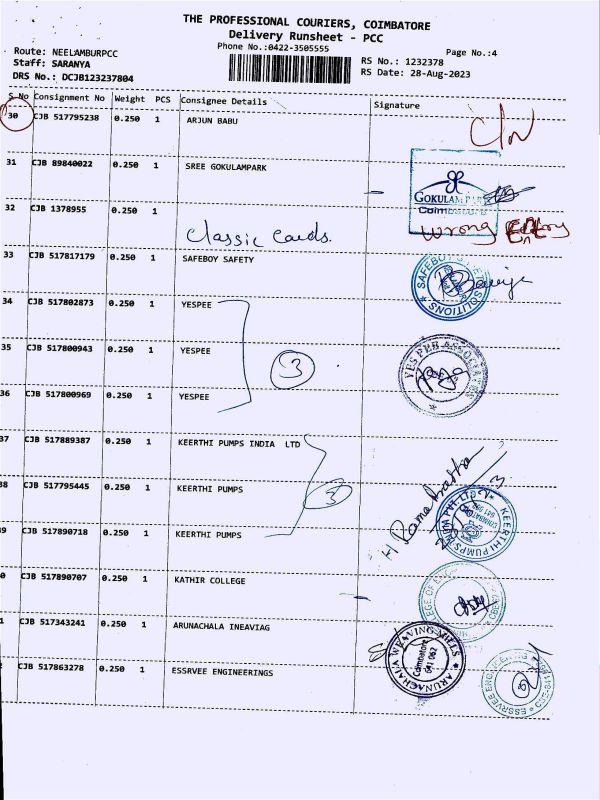 THE PROFESSIONAL COURIERS, COIMBATORE
Delivery Runsheet - PCC
Phone No.:0422-3505555
Page No.:4
Route: NEELAMBURPCC
Staff: SARANYA
DRS No.: DCJB123237804
RS No.: 1232378
RS Date: 28-Aug-2023
S No Consignment No Weight PCS Consignee Details Signature
30 CJB 517795238 0.250 1 ARJUN BABU
31 CJB 89840022 0.250 1 SREE GOKULAMPARK
GOKULAM PARK
Coimbatore
32 CJB 1378955 0.250 1
Classic Cards. Wrong Entry
33 CJB 517817179 0.250 1 SAFEBOY SAFETY
SAFEBOY SOLUTIONS
34 CJB 517802873 0.250 1 YESPEE
35 CJB 517800943 0.250 1 YESPEE
3
YES PEE ASSOCIATES
36 CJB 517800969 0.250 1 YESPEE
37 CJB 517889387 0.250 1 KEERTHI PUMPS INDIA LTD
38 CJB 517795445 0.250 1 KEERTHI PUMPS
3
KEERTHI PUMPS INDIA PVT. LTD
9 CJB 517890718 0.250 1 KEERTHI PUMPS
0 CJB 517890707 0.250 1 KATHIR COLLEGE
COLLEGE OF
1 CJB 517343241 0.250 1 ARUNACHALA INEAVIAG
ARUNACHALA WEAVING MILLS
Coimbatore
641 062
CJB 517863278 0.250 1 ESSRVEE ENGINEERINGS
ESSRVEE ENGINEERING